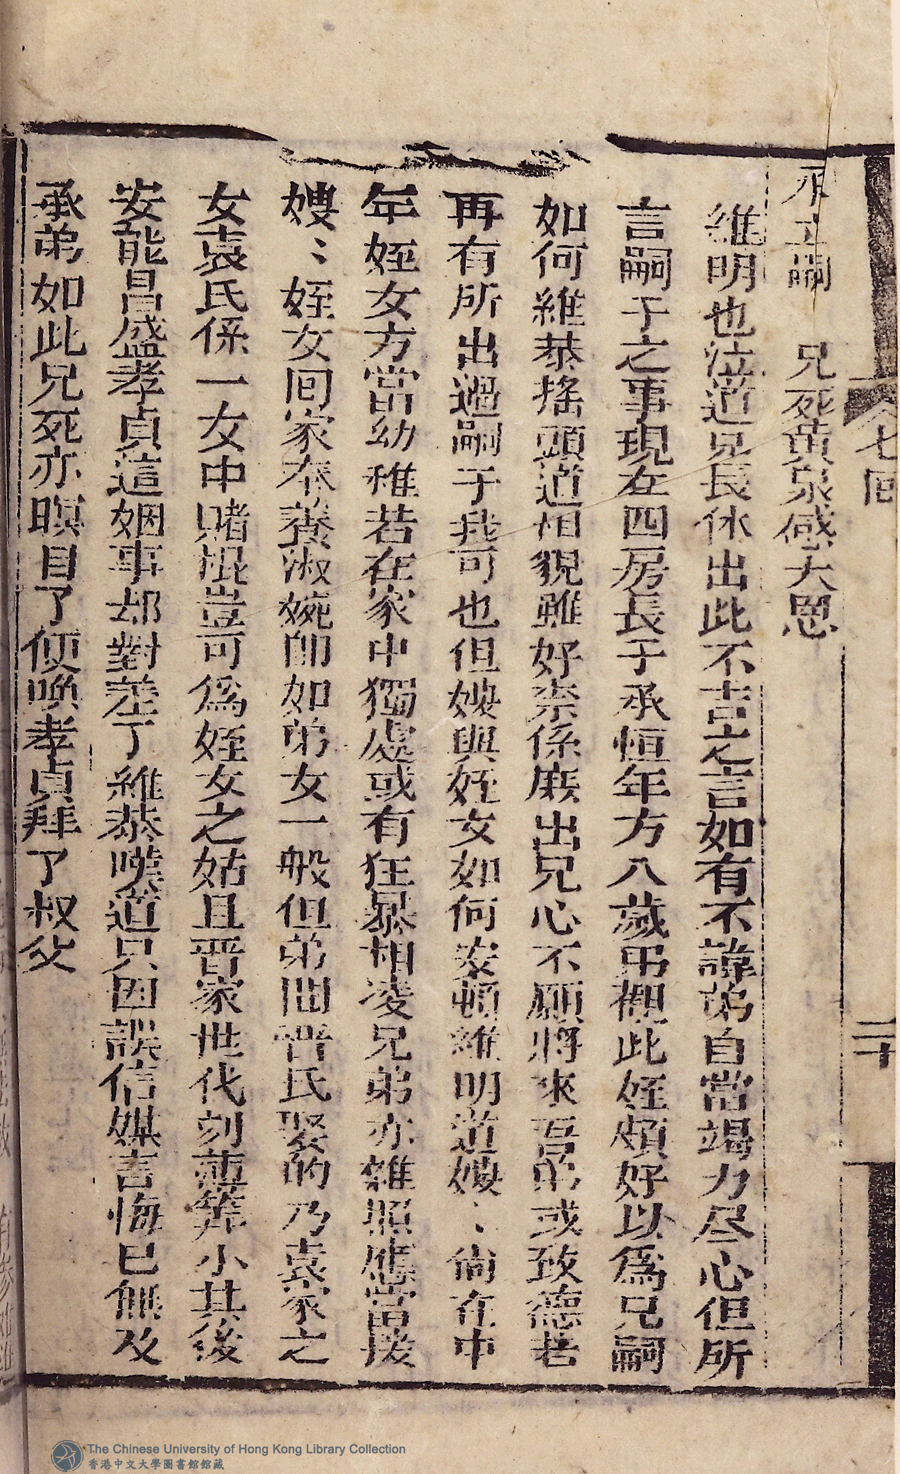 承立嗣　兄死黄泉感大恩
維明也泣道兄長休出此不吉之言如有不諱弟自當竭力尽心但所
言嗣子之事現在四房長子承恒年方八歲弟觀此姪頗好以為兄嗣
如何維恭搖頭道相貌雖好柰係庶出兄心不願將來吾弟或致德若
再有所出過嗣于我可也但嫂與姪女如何安頓維明道嫂〻尙在中
年姪女方當幼稚若在家中獨處或有狂暴相凌兄弟亦難照應當接
嫂〻姪女囘家奉養淑婉卽如弟女一般但弟聞晋氏娶的乃袁家之
女袁氏係一女中賭棍豈可為姪女之姑且晋家世代刻薄筭小其後
安能昌盛孝貞這姻事却對差了維恭嘆道只因誤信媒言悔已無及
承弟如此兄死亦瞑目了便喚孝貞拜了叔父
七囘
二十
The Chinese University of Hong Kong Library Collection
香港中文大學圖書館館藏